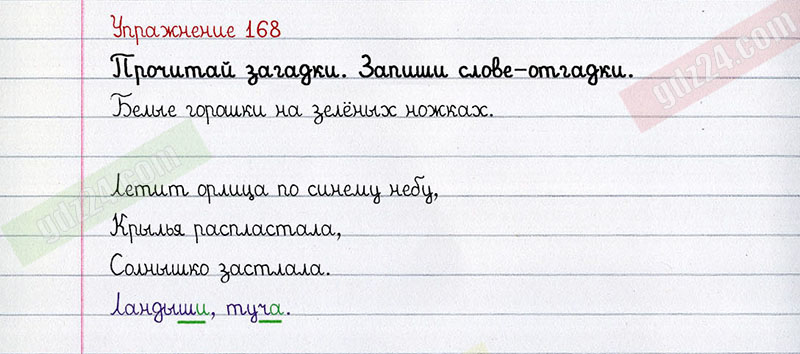 Упражнение 168
Прочитай загадки. Запиши слове-отгадки.
Белые горашки на зелёных ножках.
Летит орлица по синему небу,
Крылья распластала,
Солнышко застлала.
Ландыши, туча.
gdz24.com
gdz24.com